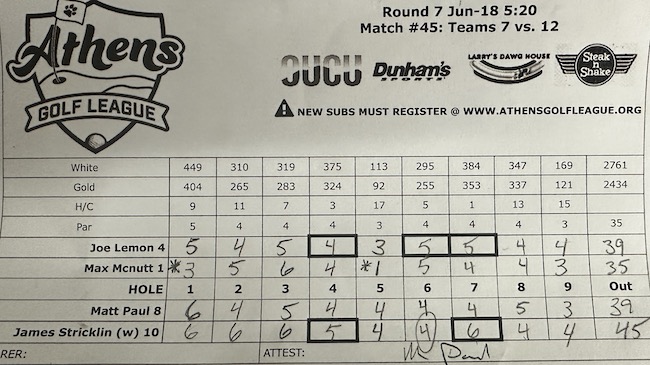 Round 7 Jun-18 5:20
Match #45: Teams 7 vs. 12
Athens
GOLF LEAGUE
OUCU Dunham's SPORTS LARRY'S DAWG HOUSE Steak n Shake
NEW SUBS MUST REGISTER @ WWW.ATHENSGOLFLEAGUE.ORG
White 449 310 319 375 113 295 384 347 169 2761
Gold 404 265 283 324 92 255 353 337 121 2434
H/C 9 11 7 3 17 5 1 13 15
Par 5 4 4 4 3 4 4 4 3 35
Joe Lemon 4 5 4 5 4 3 5 5 4 4 39
Max Mcnutt 1 *3 5 6 4 *1 5 4 4 3 35
HOLE 1 2 3 4 5 6 7 8 9 Out
Matt Paul 8 6 4 5 4 4 4 4 5 3 39
James Stricklin (w) 10 6 6 6 5 4 4 6 4 4 45
RER: ATTEST: